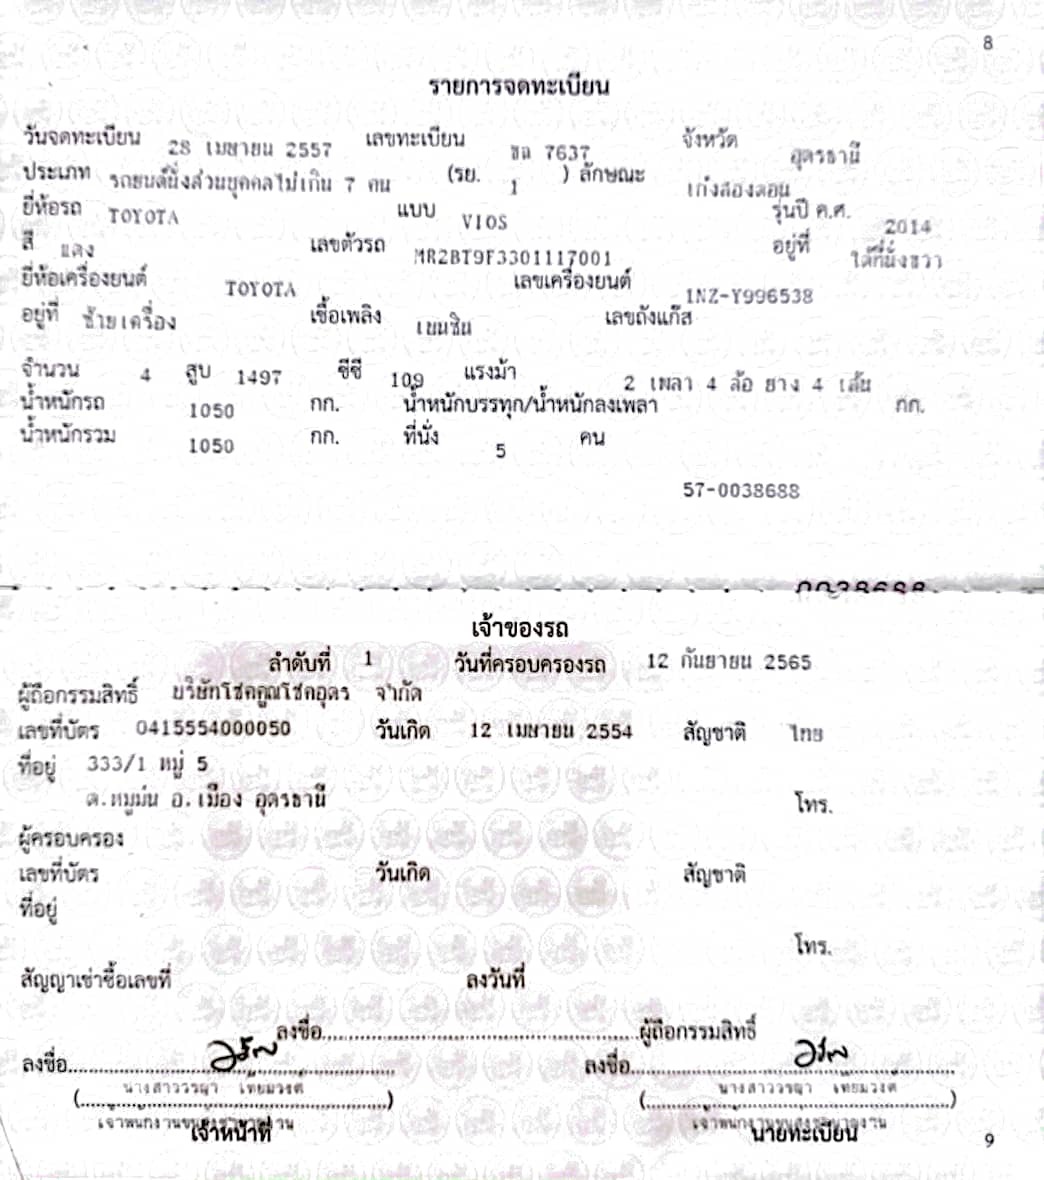 8
รายการจดทะเบียน
วันจดทะเบียน 28 เมษายน 2557 เลขทะเบียน ขฉ 7637 จังหวัด อุดรธานี
ประเภท รถยนต์นั่งส่วนบุคคลไม่เกิน 7 คน (รย. 1 ) ลักษณะ เก๋งสองตอน
ยี่ห้อรถ TOYOTA แบบ VIOS รุ่นปี ค.ศ. 2014
สี แดง เลขตัวรถ MR2BT9F3301117001 อยู่ที่ ใต้ที่นั่งขวา
ยี่ห้อเครื่องยนต์ TOYOTA เลขเครื่องยนต์ 1NZ-Y996538
อยู่ที่ ซ้ายเครื่อง เชื้อเพลิง เบนซิน เลขถังแก๊ส
จำนวน 4 สูบ 1497 ซีซี 109 แรงม้า 2 เพลา 4 ล้อ ยาง 4 เส้น
น้ำหนักรถ 1050 กก. น้ำหนักบรรทุก/น้ำหนักลงเพลา กก.
น้ำหนักรวม 1050 กก. ที่นั่ง 5 คน
57-0038688
0038688
เจ้าของรถ
ลำดับที่ 1 วันที่ครอบครองรถ 12 กันยายน 2565
ผู้ถือกรรมสิทธิ์ บริษัทโชคคูณโชคอุดร จำกัด
เลขที่บัตร 0415554000050 วันเกิด 12 เมษายน 2554 สัญชาติ ไทย
ที่อยู่ 333/1 หมู่ 5
ต.หมูม่น อ.เมือง อุดรธานี โทร.
ผู้ครอบครอง
เลขที่บัตร วันเกิด สัญชาติ
ที่อยู่
โทร.
สัญญาเช่าซื้อเลขที่ ลงวันที่
ลงชื่อ...............ผู้ถือกรรมสิทธิ์
ลงชื่อ............... ลงชื่อ...............
(นางสาววรญา เทียมวงศ์) (นางสาววรญา เทียมวงศ์)
เจ้าพนักงานขนส่งชำนาญงาน เจ้าพนักงานขนส่งชำนาญงาน
เจ้าหน้าที่ นายทะเบียน
9